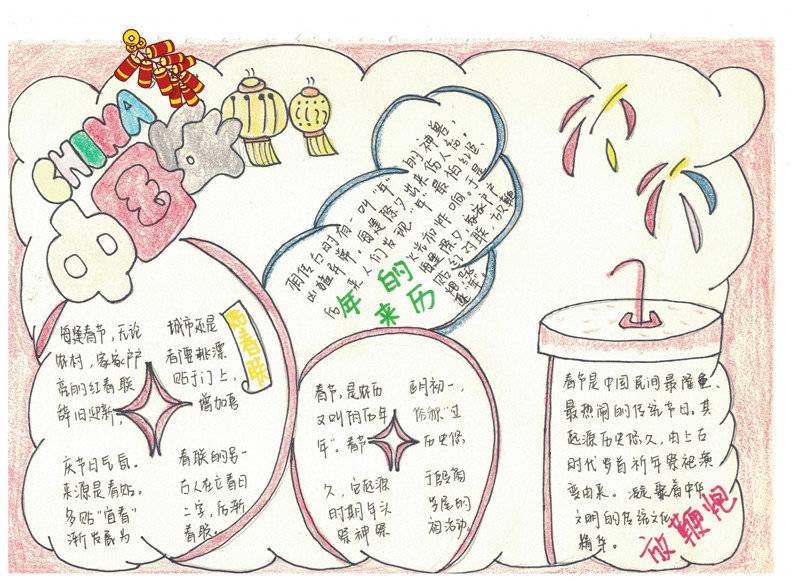 CHINA
中国年
相传古时有,叫"年"的神兽,
凶猛异常,每逢除夕出来伤人畜。
后来人们发现"年"最怕红色
火光和炸响。于是
每逢除夕家家户户
贴红对联,放鞭
年的
来历
贴春联
每逢春节,无论 城市还是
农村,家家户户 都要挑漂
亮的红春联 贴于门上,
辞旧迎新, 增加喜
庆节日气氛。 春联的另一
来源是春帖。 古人在立春日
多贴"宜春" 二字,后渐
渐发展为 春联。
春节,是农历 正月初一,
又叫阴历年 俗称"过
年"。春节 历史悠
久,它起源 于殷商
时期年头 岁尾的
祭神祭 祖活动。
春节是中国民间最隆重
最热闹的传统节日。其
起源历史悠久,由上古
时代岁首祈年祭祀演
变而来。凝聚着中华
文明的传统文化
精华。
放鞭炮